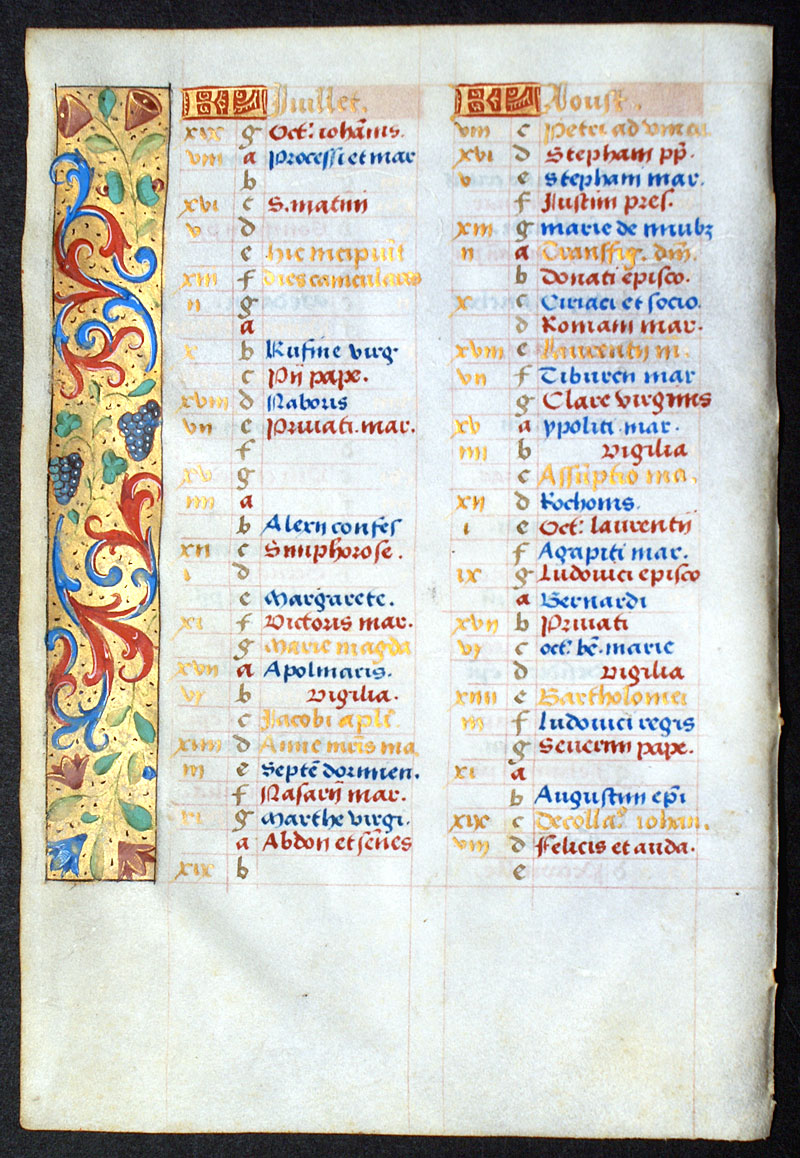 KL Juillet.
xix g Oct: iohanis.
viii a Processi et mar
b
xvi c S. matini
v d
e hic incipiut
xiii f dies caniculares
ii g
a
x b Rufine virg
c Pij pape.
xviii d Naboris
vii e Privati. mar.
f
xv g
iiii a
b Alexij confes
xii c Simphorose.
i d
e Margarete.
xi f Victoris mar.
g Marie magda
xvii a Apolinaris.
vi b Vigilia.
c Jacobi aplī.
xiiii d Anne mris ma
iii e Septē dormien.
f Nasarij mar.
xi g Marthe virgi.
a Abdon et senes
xix b
KL Aoust.
viii c Petri ad vincu
xvi d Stephani pp.
v e Stephani mar.
f Justini pres.
xiii g marie de niuibz
ii a Transfig. dni.
b Donati episco.
x c Ciriaci et socio.
d Romani mar.
xviii e Laurentij m.
vii f Tiburcii mar
g Clare virginis
xv a ypoliti. mar.
iiii b Vigilia
c Assūptio ma.
xii d Rochonis.
i e Oct: laurentij
f Agapiti mar.
ix g Ludovici episco
a Bernardi
xvii b Privati
vi c oct: bē. marie
d Vigilia
xiiii e Bartholomei
iii f Ludovici regis
g Severini pape.
xi a
b Augustini epi
xix c Decolla° iohan.
viii d Felicis et auda.
e